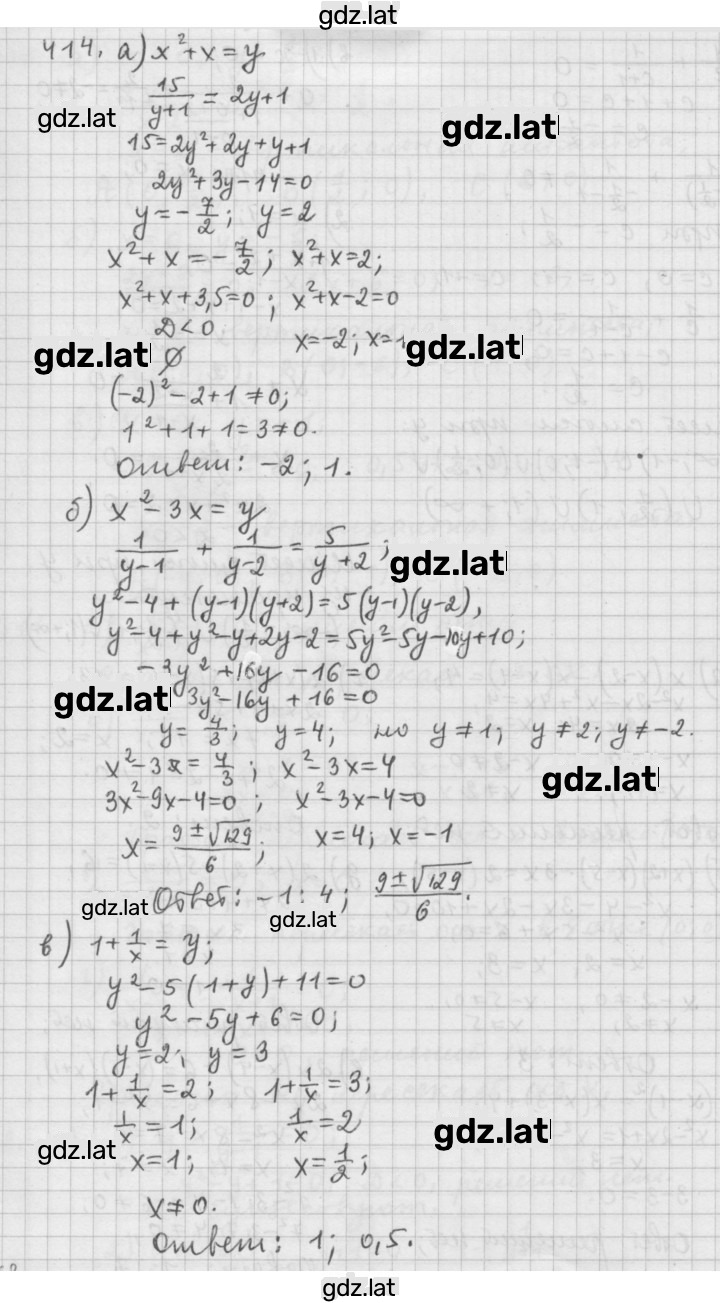 gdz.lat
414. а) x²+x=y
15/(y+1) = 2y+1
gdz.lat
gdz.lat
15=2y²+2y+y+1
2y²+3y-14=0
y=-7/2; y=2
x²+x=-7/2; x²+x=2;
x²+x+3,5=0; x²+x-2=0
D<0
x=-2; x=1
gdz.lat ∅
gdz.lat
(-2)²-2+1≠0;
1²+1+1=3≠0.
Ответ: -2; 1.
б) x²-3x=y
1/(y-1) + 1/(y-2) = 5/(y+2);
gdz.lat
y²-4+(y-1)(y+2)=5(y-1)(y-2),
y²-4+y²-y+2y-2=5y²-5y-10y+10;
-3y²+16y-16=0
gdz.lat 3y²-16y+16=0
y=4/3; y=4; но y≠1; y≠2; y≠-2.
x²-3x=4/3; x²-3x=4
gdz.lat
3x²-9x-4=0; x²-3x-4=0
x=(9±√129)/6; x=4; x=-1
Ответ: -1; 4; (9±√129)/6.
gdz.lat
gdz.lat
в) 1+1/x=y;
y²-5(1+y)+11=0
y²-5y+6=0;
y=2; y=3
1+1/x=2; 1+1/x=3;
1/x=1; 1/x=2
gdz.lat
gdz.lat
x=1; x=1/2;
x≠0.
Ответ: 1; 0,5.
gdz.lat